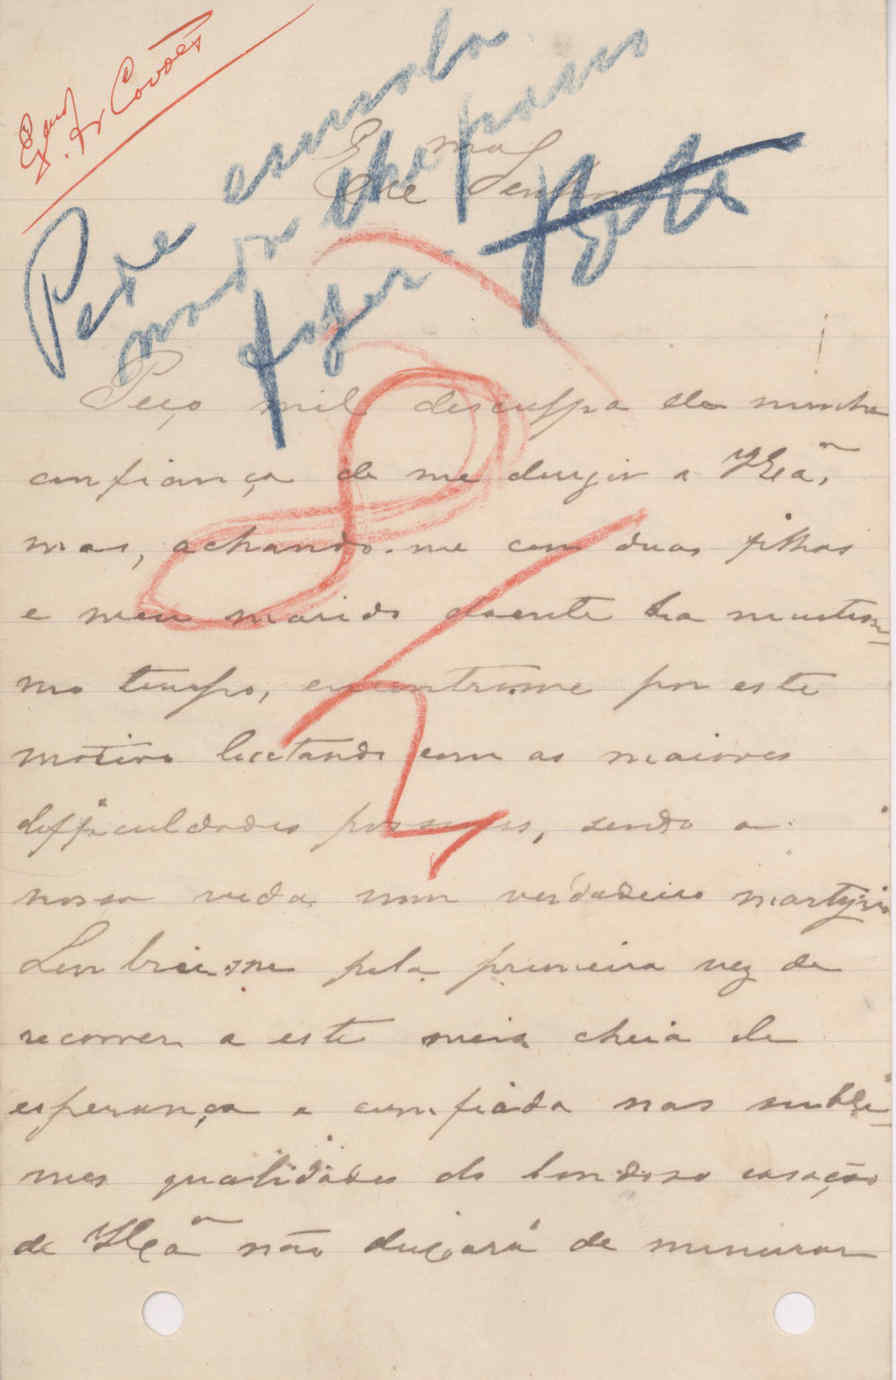 Pede esmola
nada lhe posso
fazer.
Exma
Senhora
Peço mil desculpa da minha
confiança de me dirigir a VExa,
mas, achando-me com duas filhas
e meu marido doente ha muitissi-
mo tempo, encontrome por este
motivo luctando com as maiores
difficuldades possiveis, sendo a
nossa vida num verdadeiro martyrio
Lembrei-me pela primeira vez de
recorrer a este meio cheia de
esperança e comfiada nas subli-
mes qualidades do bondoso coração
de VExa não deixará de minurar